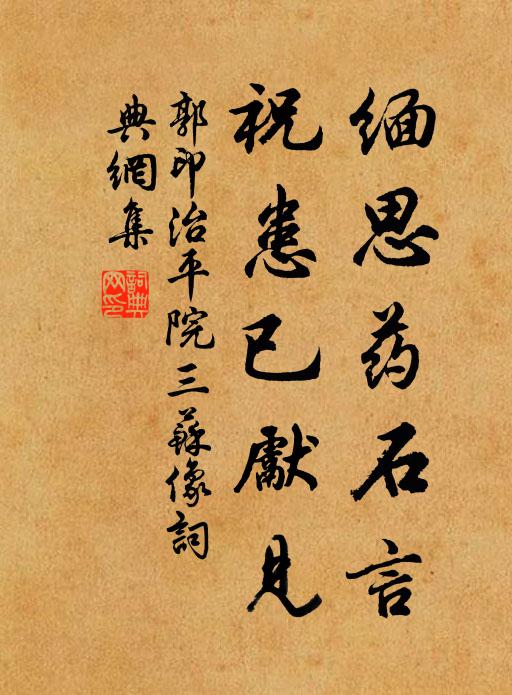 缅思药石言
祝患已獻見
郭印治平院三蘇像詞
典網集
詞典
网印